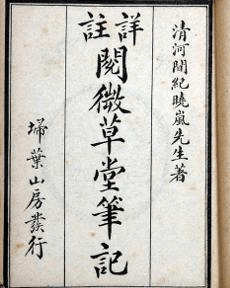 清河間紀曉嵐先生著
詳註閱微草堂筆記
埽葉山房發行